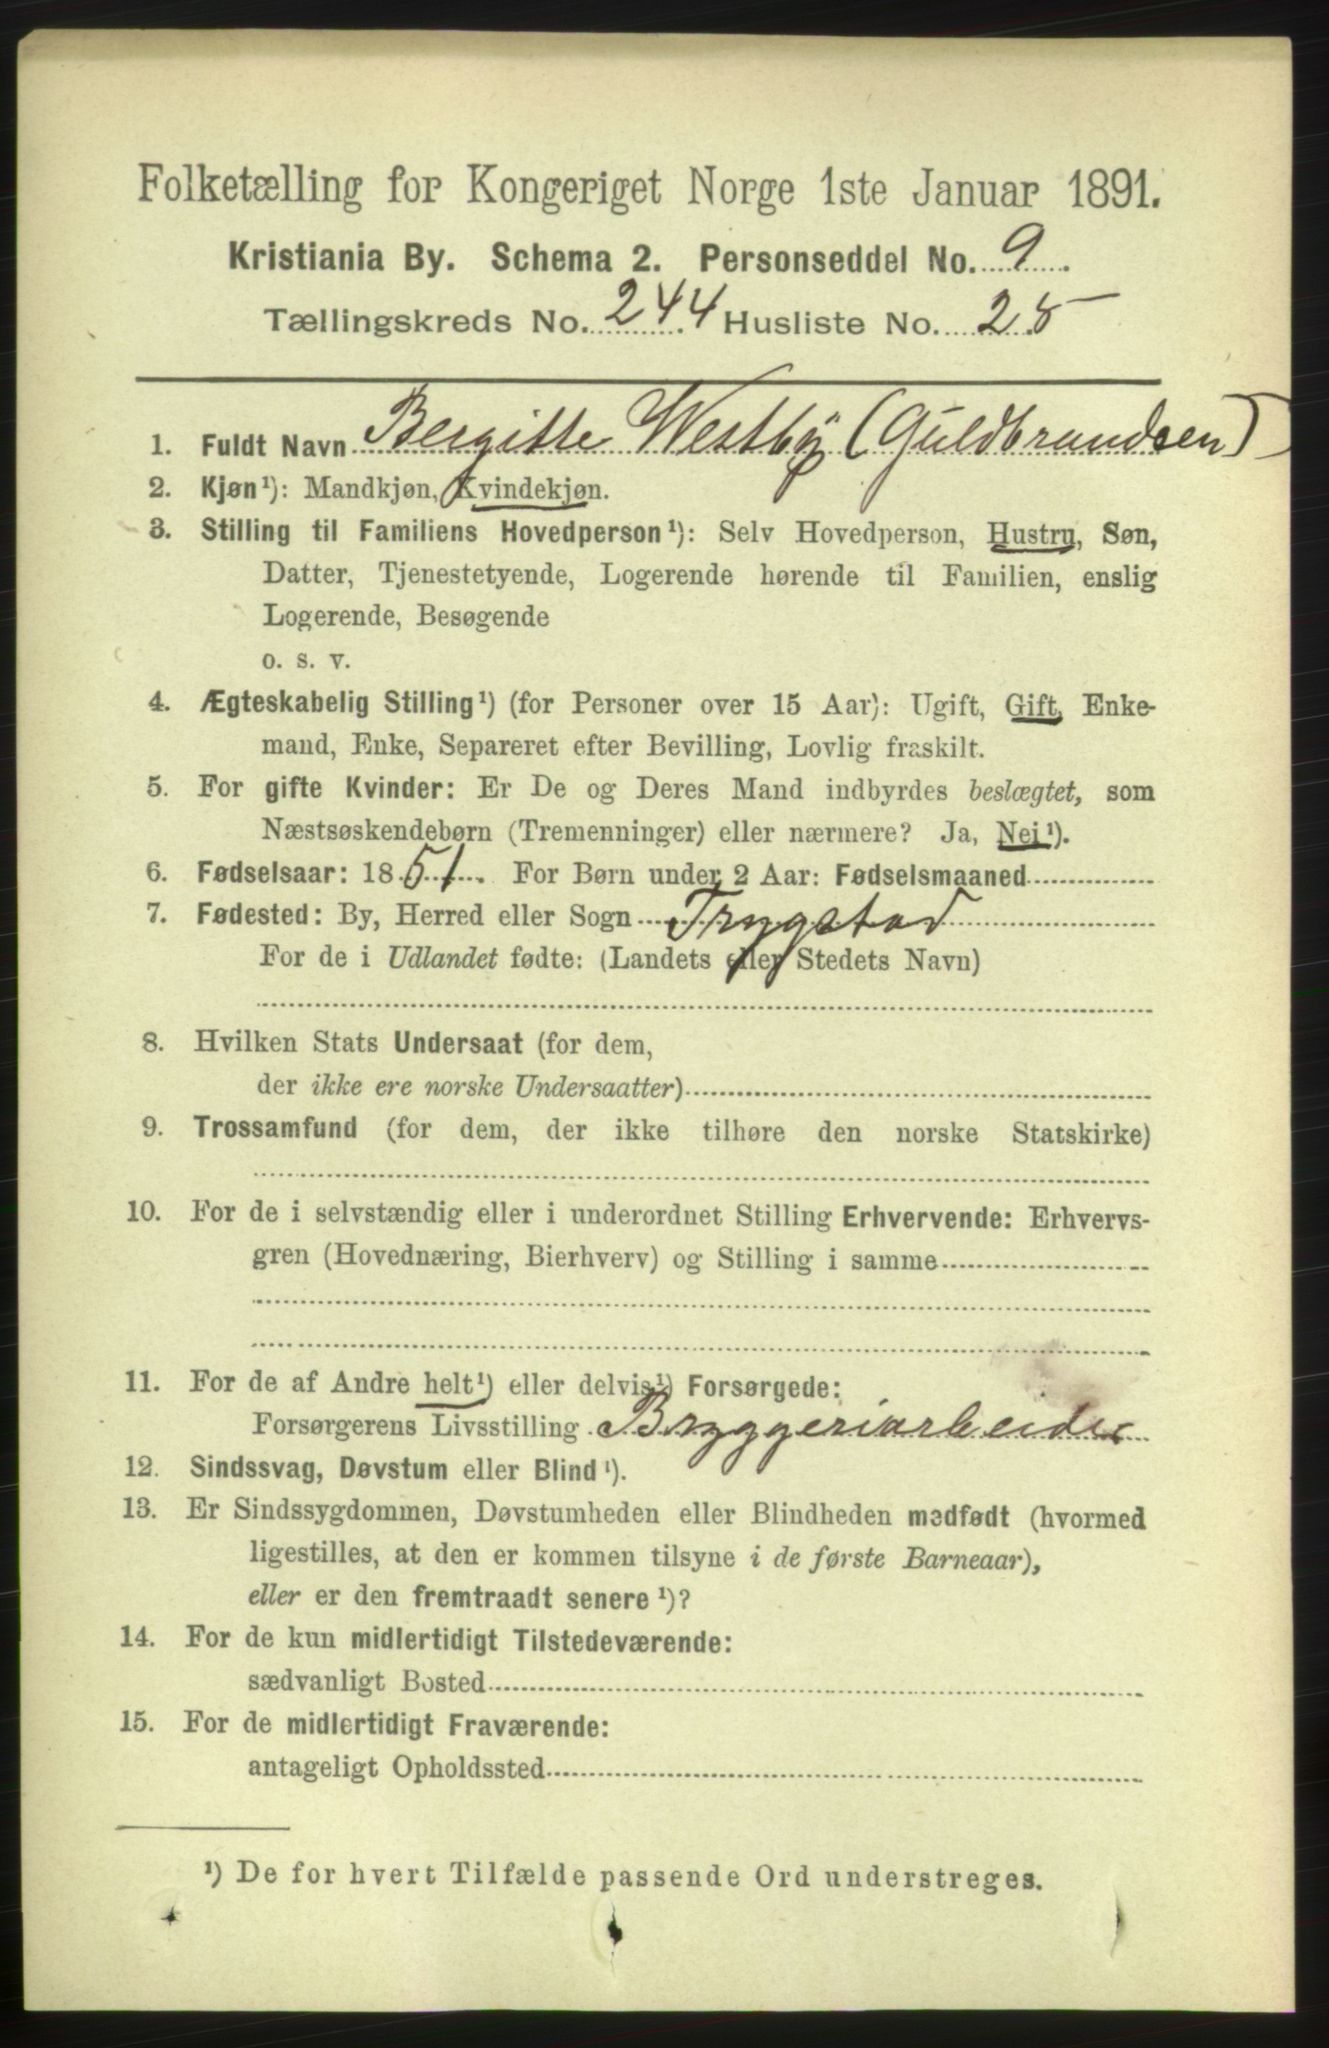 Folketælling for Kongeriget Norge 1ste Januar 1891.
Kristiania By. Schema 2. Personseddel No. 9
Tællingskreds No. 244 Husliste No. 25
1. Fuldt Navn Bergitte Westby (Guldbrandsen)
2. Kjøn¹): Mandkjøn, Kvindekjøn.
3. Stilling til Familiens Hovedperson¹): Selv Hovedperson, Hustru, Søn,
Datter, Tjenestetyende, Logerende hørende til Familien, enslig
Logerende, Besøgende
o. s. v.
4. Ægteskabelig Stilling¹) (for Personer over 15 Aar): Ugift, Gift, Enke-
mand, Enke, Separeret efter Bevilling, Lovlig fraskilt.
5. For gifte Kvinder: Er De og Deres Mand indbyrdes beslægtet, som
Næstsøskendebørn (Tremenninger) eller nærmere? Ja, Nei¹).
6. Fødselsaar: 1851. For Børn under 2 Aar: Fødselsmaaned
7. Fødested: By, Herred eller Sogn Trygstad
For de i Udlandet fødte: (Landets eller Stedets Navn)
8. Hvilken Stats Undersaat (for dem,
der ikke ere norske Undersaatter)
9. Trossamfund (for dem, der ikke tilhøre den norske Statskirke)
10. For de i selvstændig eller i underordnet Stilling Erhvervende: Erhvervs-
gren (Hovednæring, Bierhverv) og Stilling i samme
11. For de af Andre helt¹) eller delvis¹) Forsørgede:
Forsørgerens Livsstilling Bryggeriarbeider
12. Sindssvag, Døvstum eller Blind¹).
13. Er Sindssygdommen, Døvstumheden eller Blindheden medfødt (hvormed
ligestilles, at den er kommen tilsyne i de første Barneaar),
eller er den fremtraadt senere¹)?
14. For de kun midlertidigt Tilstedeværende:
sædvanligt Bosted
15. For de midlertidigt Fraværende:
antageligt Opholdssted
¹) De for hvert Tilfælde passende Ord understreges.